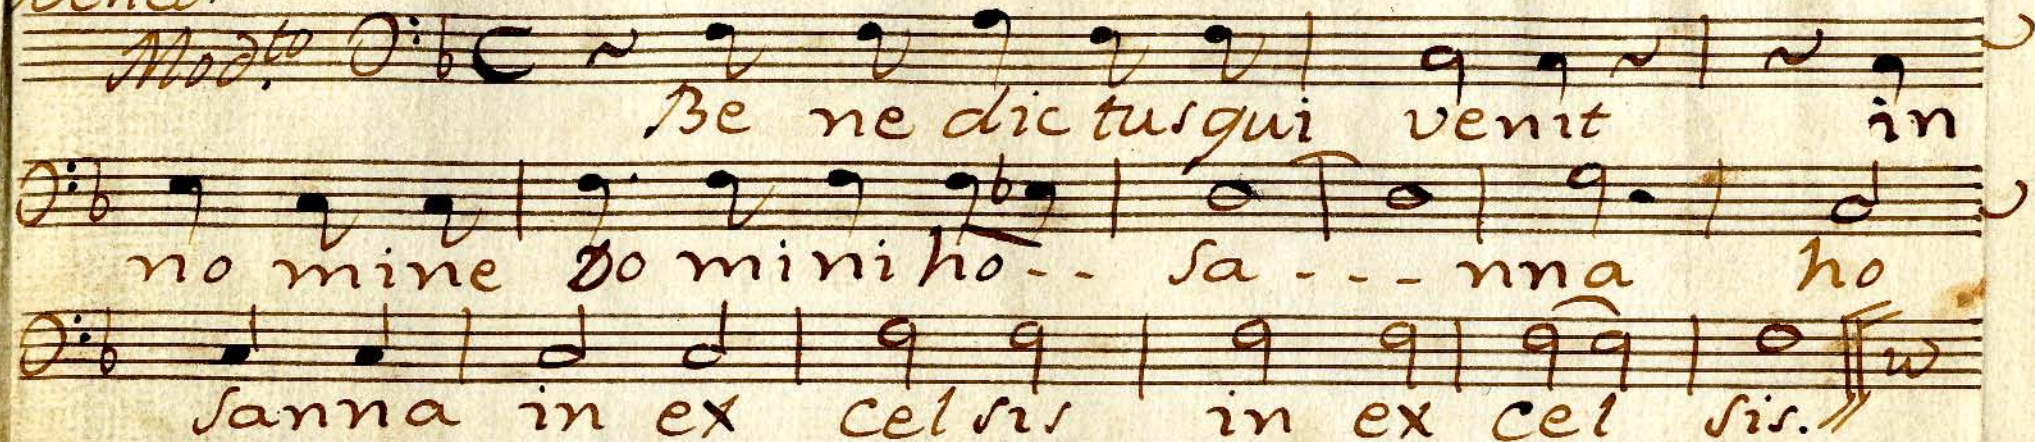 Mod.to
Be ne dic tus qui venit in
no mine Do mini ho-- sa --- nna ho
sanna in ex cel sis in ex cel sis.